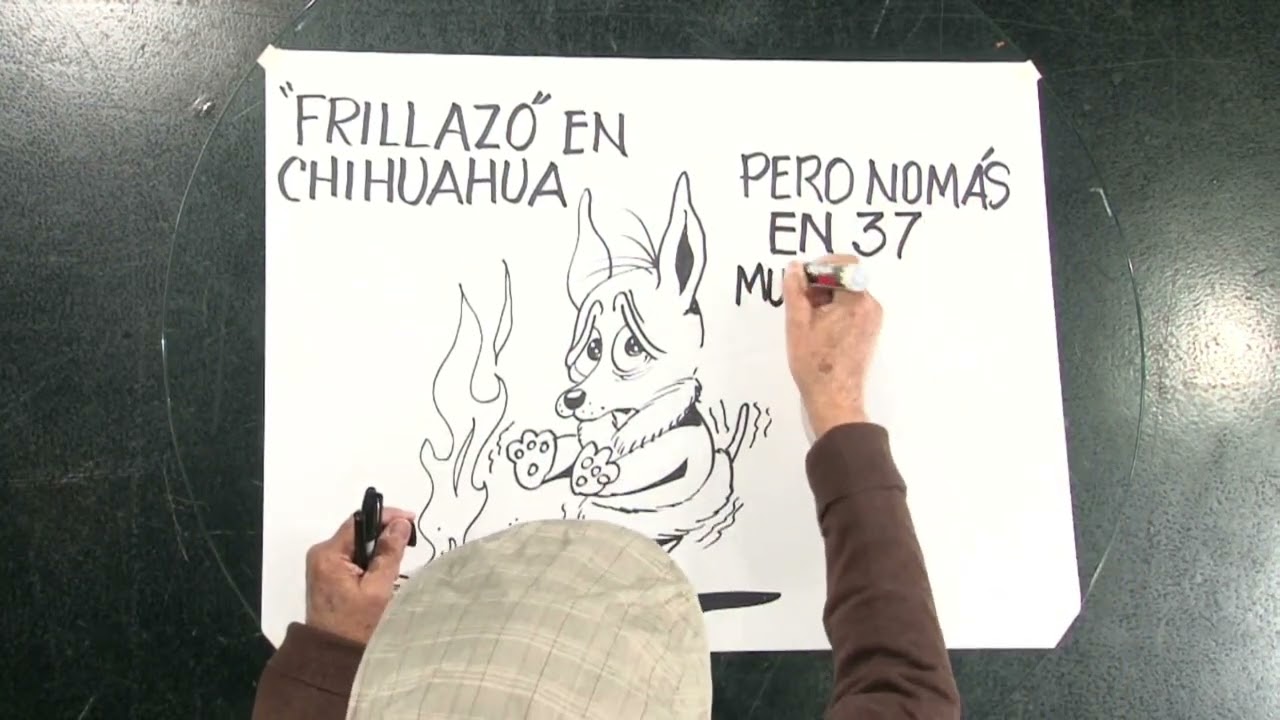 "FRILLAZO" EN
CHIHUAHUA
PERO NOMÁS
EN 37
MU